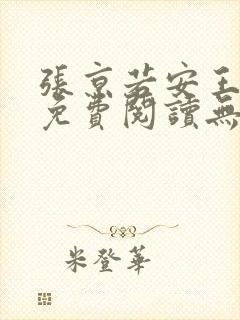 張京若安王
免費閱讀無
米登華